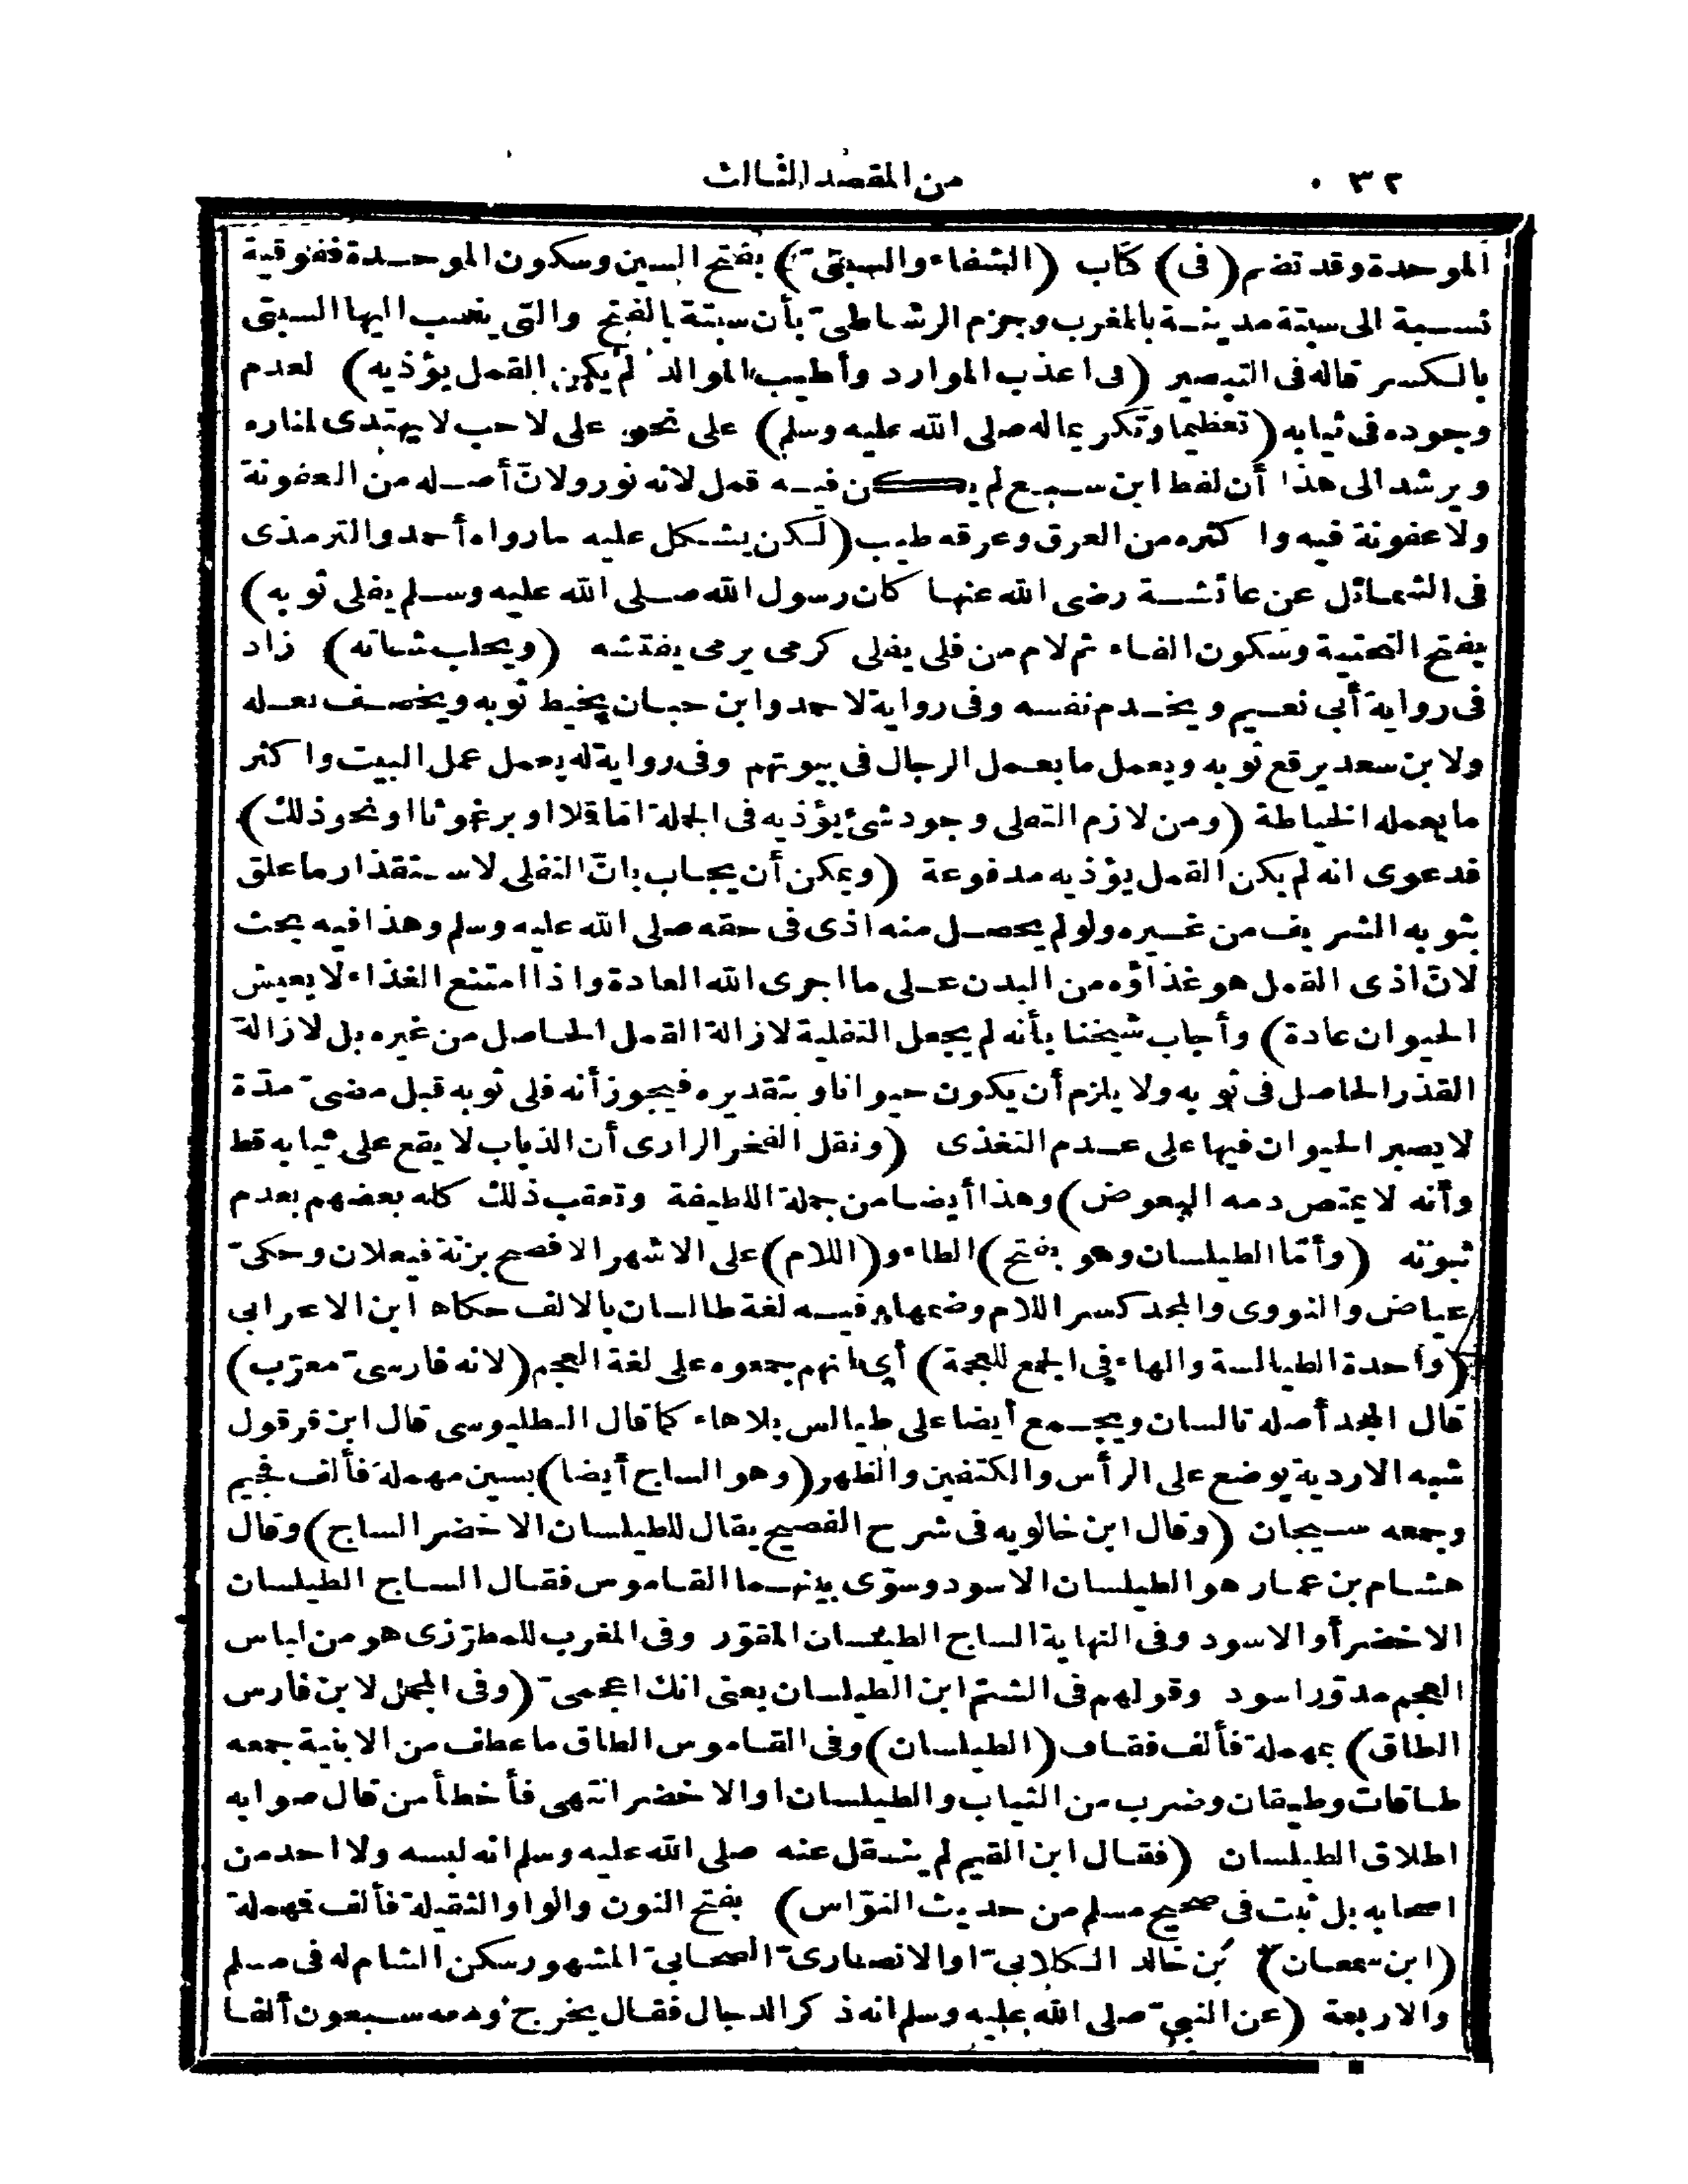 ٣٢ من المقصد الثالث
الموحدة وقد تضم (فى) كتاب (الشفاء والسبتى) بفتح السين وسكون الموحدة ففوقية
نسبة الى سبتة مدينة بالمغرب وجزم الرشاطى بأن سبتة بالفتح والتى ينسب اليها السبتى
بالكسر قاله فى التبصير (فى اعذب الموارد وأطيب الموالد لم يكن القمل يؤذيه) لعدم
وجوده فى ثيابه (تعظيما وتكريما له صلى الله عليه وسلم) على نحو على لاحب لا يهتدى لمناره
ويرشد الى هذا أن لفظ ابن سبع لم يكن فيه قمل لانه نور ولان أصله من العفونة
ولا عفونة فيه واكثره من العرق وعرقه طيب (لكن يشكل عليه ما رواه أحمد والترمذى
فى الشمائل عن عائشة رضى الله عنها كان رسول الله صلى الله عليه وسلم يفلى ثوبه)
بفتح التحتية وسكون الفاء ثم لام من فلى يفلى كرمى يرمى يفتشه (ويحلب شاته) زاد
فى رواية أبى نعيم ويخدم نفسه وفى رواية لاحمد وابن حبان يخيط ثوبه ويخصف نعله
ولابن سعد يرقع ثوبه ويعمل ما يعمل الرجال فى بيوتهم وفى رواية له يعمل عمل البيت واكثر
ما يعمله الخياطة (ومن لازم التفلى وجود شئ يؤذيه فى الجملة اما قلا او برغوثا او نحو ذلك)
فدعوى انه لم يكن القمل يؤذيه مدفوعة (ويمكن أن يجاب بانّ التفلى لاستقذار ما علق
بثوبه الشريف من غيره ولو لم يحصل منه اذى فى حقه صلى الله عليه وسلم وهذا فيه بحث
لانّ اذى القمل هو غذاؤه من البدن على ما اجرى الله العادة واذا امتنع الغذاء لا يعيش
الحيوان عادة) وأجاب شيخنا بأنه لم يجعل التفلية لازالة القمل الحاصل من غيره بل لازالة
القذر الحاصل فى ثوبه ولا يلزم أن يكون حيوانا وبتقديره فيجوز أنه فلى ثوبه قبل مضىّ مدّة
لا يصبر الحيوان فيها على عدم التغذى (ونقل الفخر الرازى أن الذباب لا يقع على ثيابه قط
وأنه لا يمتص دمه البعوض) وهذا أيضا من جملة اللطيفة وتعقب ذلك كله بعضهم بعدم
ثبوته (وأمّا الطيلسان وهو بفتح) الطاء و(اللام) على الاشهر الافصح بزنة فيعلان وحكى
عياض والنووى والمجد كسر اللام وضمها وفيه لغة طالسان بالالف حكاه ابن الاعرابى
(واحدة الطيالسة والهاء فى الجمع للعجمة) أى انهم جمعوه على لغة العجم (لانه فارسىّ معرّب)
قال المجد أصله تالسان ويجمع أيضا على طيالس بلا هاء كما قال البطليوسى قال ابن قرقول
شبه الاردية يوضع على الرأس والكتفين والظهر (وهو الساج أيضا) بسين مهملة فألف فجيم
وجمعه سيجان (وقال ابن خالويه فى شرح الفصيح يقال للطيلسان الاخضر الساج) وقال
هشام بن عمار هو الطيلسان الاسود وسوّى بينهما القاموس فقال الساج الطيلسان
الاخضر أو الاسود وفى النهاية الساج الطيلسان المقوّر وفى المغرب للمطرّزى هو من لباس
العجم مدوّر اسود وقولهم فى الشتم ابن الطيلسان يعنى انك اعجمىّ (وفى المجمل لابن فارس
الطاق) بمهملة فألف فقاف (الطيلسان) وفى القاموس الطاق ما عطف من الابنية جمعه
طاقات وطيقان وضرب من الثياب والطيلسان او الاخضر انتهى فأخطأ من قال صوابه
اطلاق الطيلسان (فقال ابن القيم لم ينقل عنه صلى الله عليه وسلم انه لبسه ولا احد من
اصحابه بل ثبت فى صحيح مسلم من حديث النوّاس) بفتح النون والواو الثقيلة فألف فهملة
(ابن سمعان) بن خالد الكلابىّ او الانصارىّ الصحابىّ المشهور سكن الشام له فى مسلم
والاربعة (عن النبىّ صلى الله عليه وسلم انه ذكر الدجال فقال يخرج ومعه سبعون ألفا